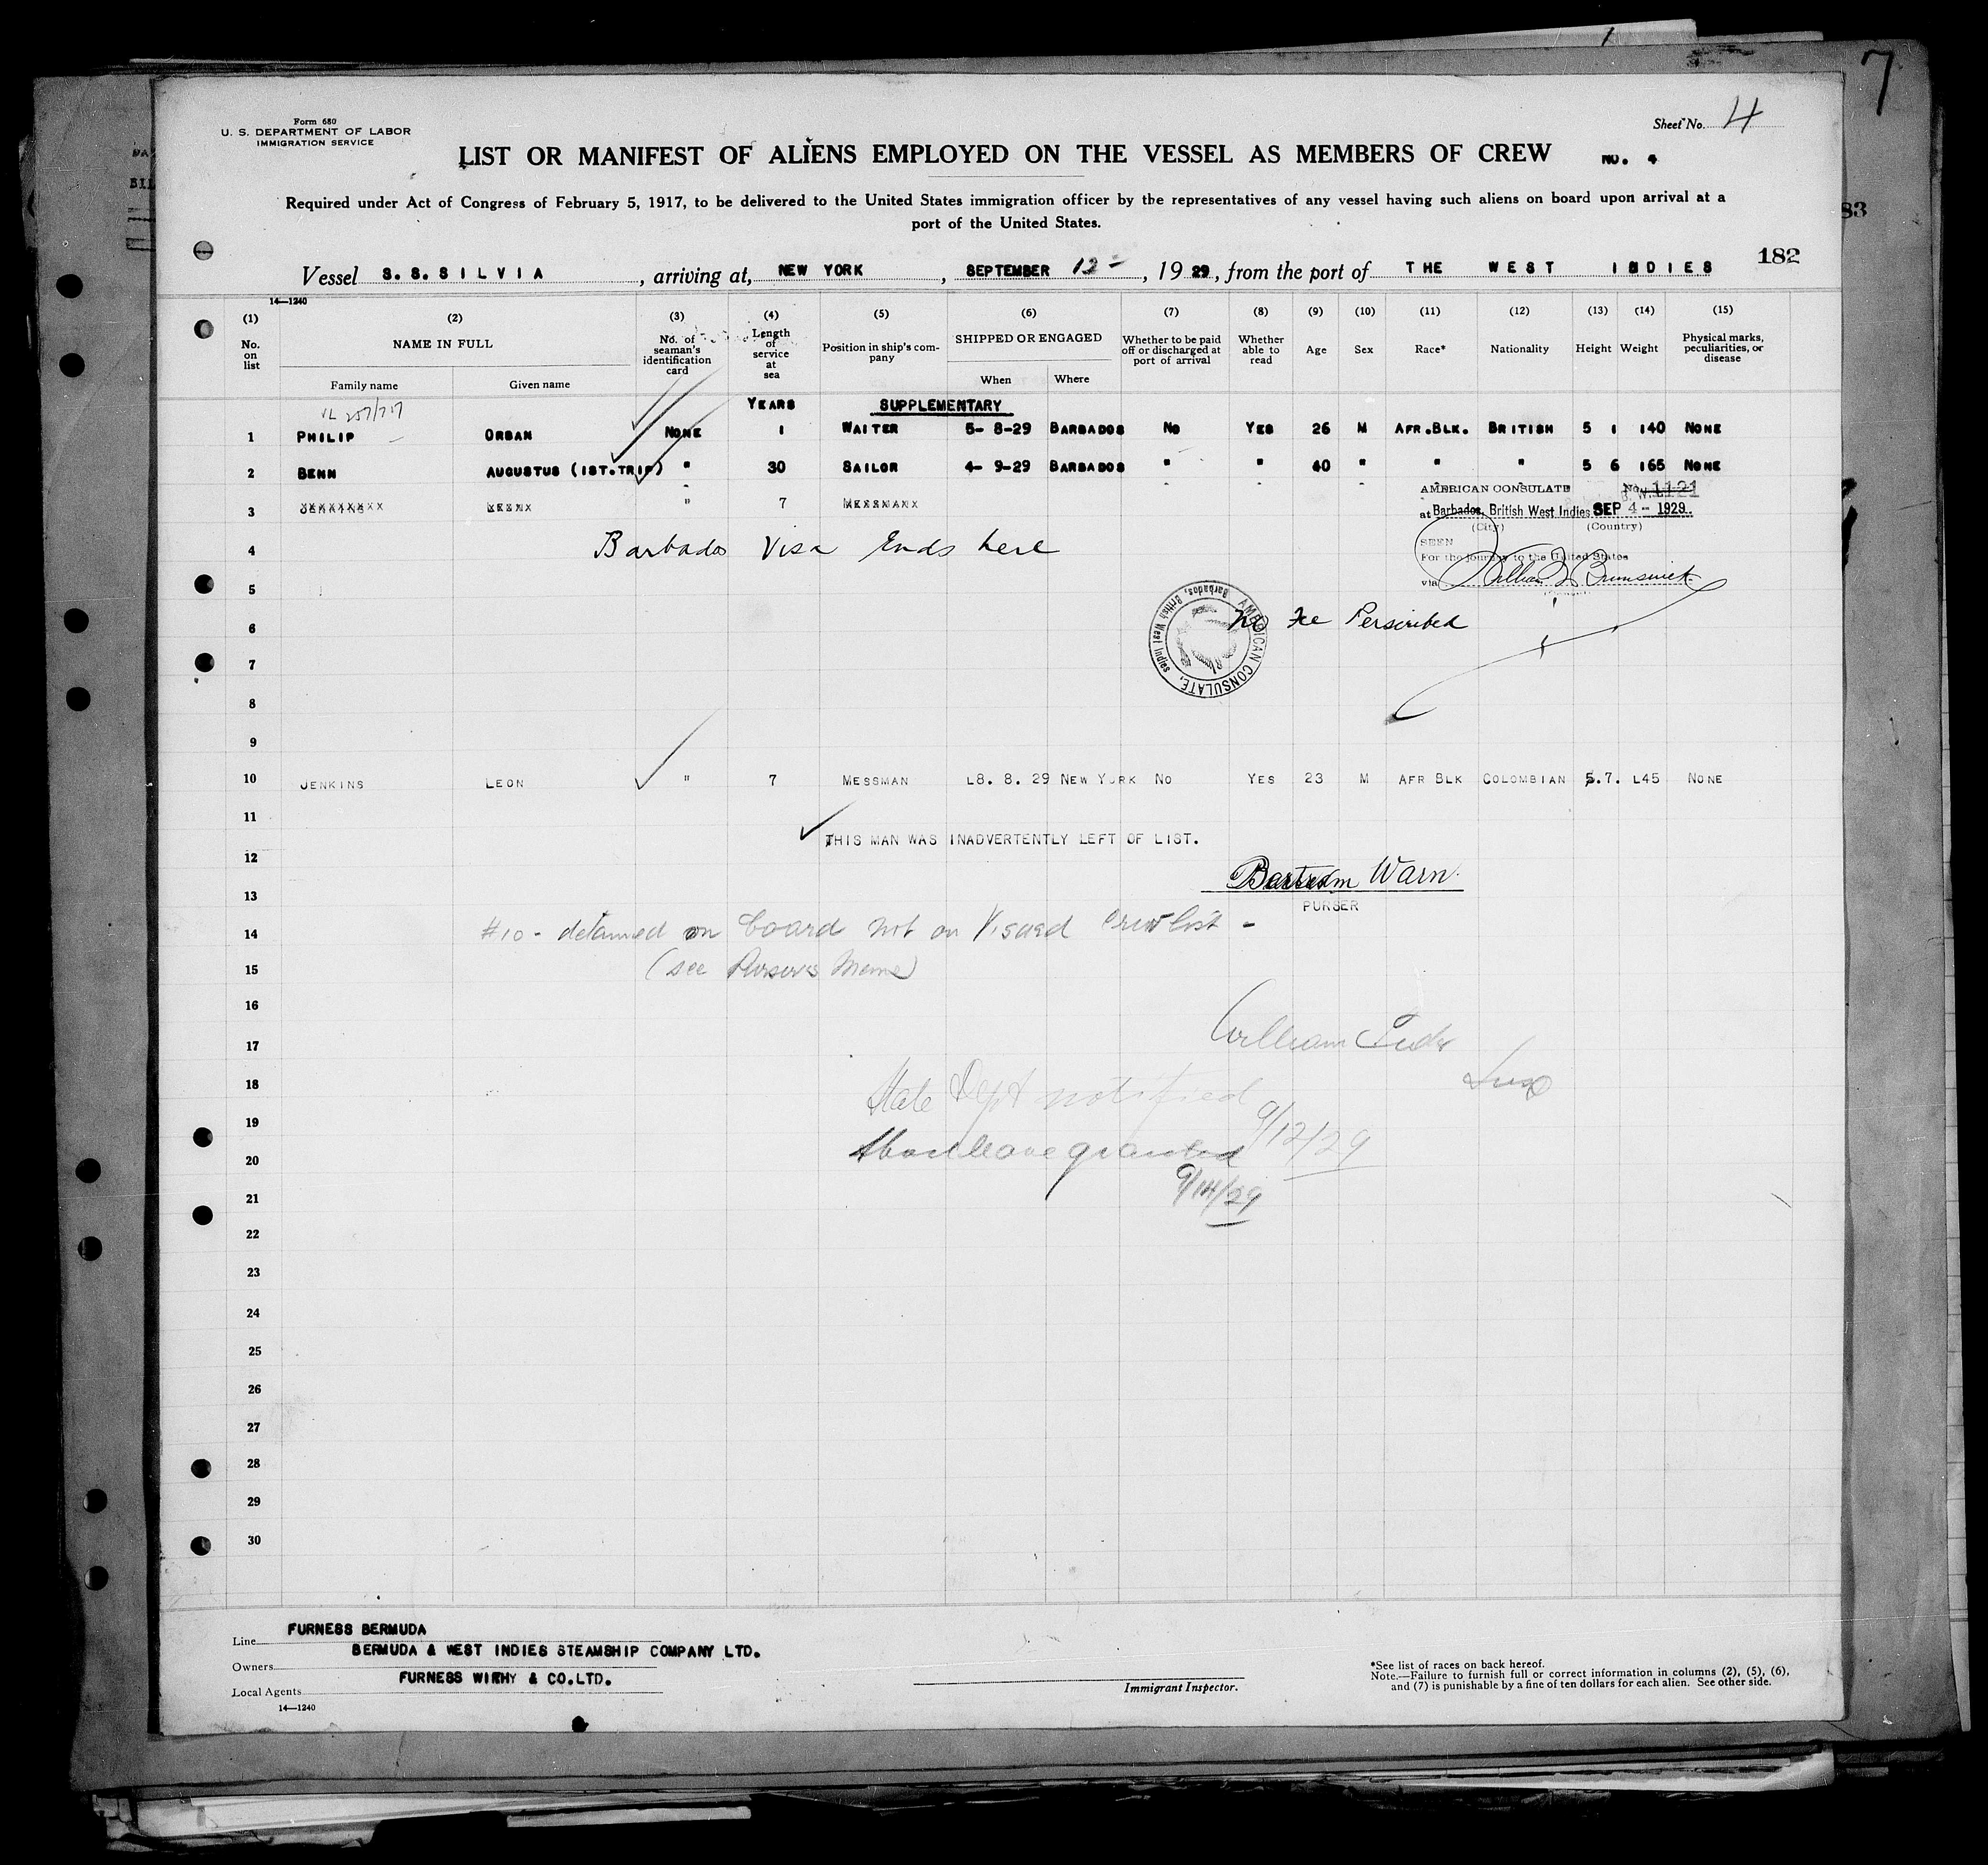 7
Form 680
U. S. DEPARTMENT OF LABOR
IMMIGRATION SERVICE
Sheet No. 4
LIST OR MANIFEST OF ALIENS EMPLOYED ON THE VESSEL AS MEMBERS OF CREW NO. 4
Required under Act of Congress of February 5, 1917, to be delivered to the United States immigration officer by the representatives of any vessel having such aliens on board upon arrival at a
port of the United States.
83
182
Vessel S.S.SILVIA, arriving at, NEW YORK, SEPTEMBER 12-, 1929, from the port of THE WEST INDIES
14—1240
(1) (2) (3) (4) (5) (6) (7) (8) (9) (10) (11) (12) (13) (14) (15)
No. on list NAME IN FULL No. of seaman's identification card Length of service at sea Position in ship's company SHIPPED OR ENGAGED Whether to be paid off or discharged at port of arrival Whether able to read Age Sex Race* Nationality Height Weight Physical marks, peculiarities, or disease
Family name Given name When Where
YEARS SUPPLEMENTARY
1 PHILIP ORBAN NONE 1 WAITER 5- 8-29 BARBADOS NO YES 26 M AFR.BLK. BRITISH 5 1 140 NONE
2 BENN AUGUSTUS (1ST.TRIP) " 30 SAILOR 4- 9-29 BARBADOS " " 40 " " " 5 6 165 NONE
3 " 7
AMERICAN CONSULATE No. 1121
at Barbados, British West Indies SEP 4- 1929
(City) (Country)
4 Barbados Visa Ends here
SEEN
For the journey to the United States
via
5
6 No Fee Perscribed
AMERICAN CONSULATE, Barbados, British West Indies
7
8
9
10 JENKINS LEON " 7 MESSMAN L8. 8. 29 NEW YORK NO YES 23 M AFR BLK COLOMBIAN 5.7. L45 NONE
11
THIS MAN WAS INADVERTENTLY LEFT OF LIST.
12
Bertram Warn.
13
PURSER
14 #10 - detained on board not on Visaed Crew list -
15 (see Pursers Memo)
16
17
18 State Dept notified
19 9/12/29
20 Shore leave granted
21 9/14/29
22
23
24
25
26
27
28
29
30
Line FURNESS BERMUDA
Owners BERMUDA & WEST INDIES STEAMSHIP COMPANY LTD.
Local Agents FURNESS WITHY & CO.LTD.
14—1240
Immigrant Inspector.
*See list of races on back hereof.
Note.—Failure to furnish full or correct information in columns (2), (5), (6),
and (7) is punishable by a fine of ten dollars for each alien. See other side.